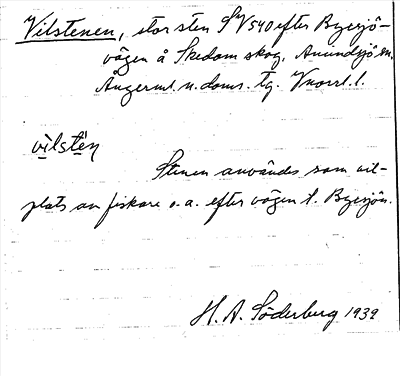 Vilstenen, stor sten SV 540 efter Byersjö-
vägen å Skedom skog, Anundsjö sn,
Ångerml. n. doms. tg. Vnorrl. l.
vìlstén
Stenen användes som vil-
plats av fiskare o. a. efter vägen t. Byersjön.
H. A. Söderberg 1939